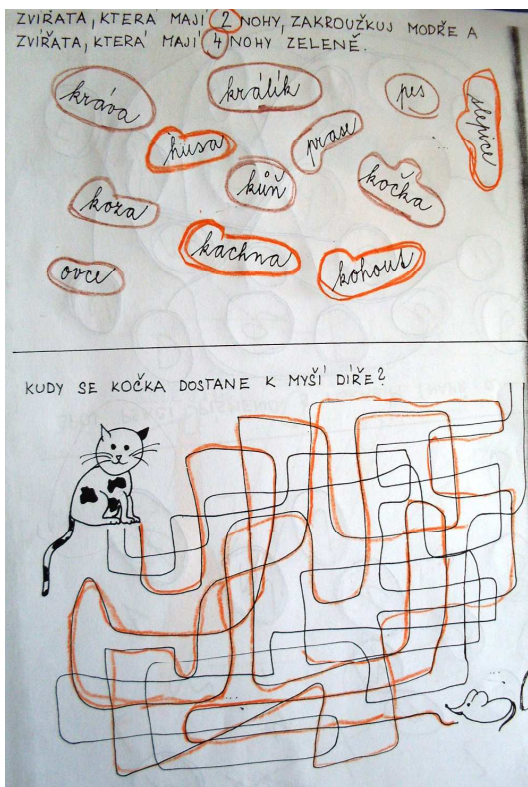 ZVÍŘATA, KTERÁ MAJÍ 2 NOHY, ZAKROUŽKUJ MODŘE A
ZVÍŘATA, KTERÁ MAJÍ 4 NOHY ZELENĚ.
kráva králík pes slepice
husa prase
kůň kočka
koza
kachna
ovce kohout
KUDY SE KOČKA DOSTANE K MYŠÍ DÍŘE?